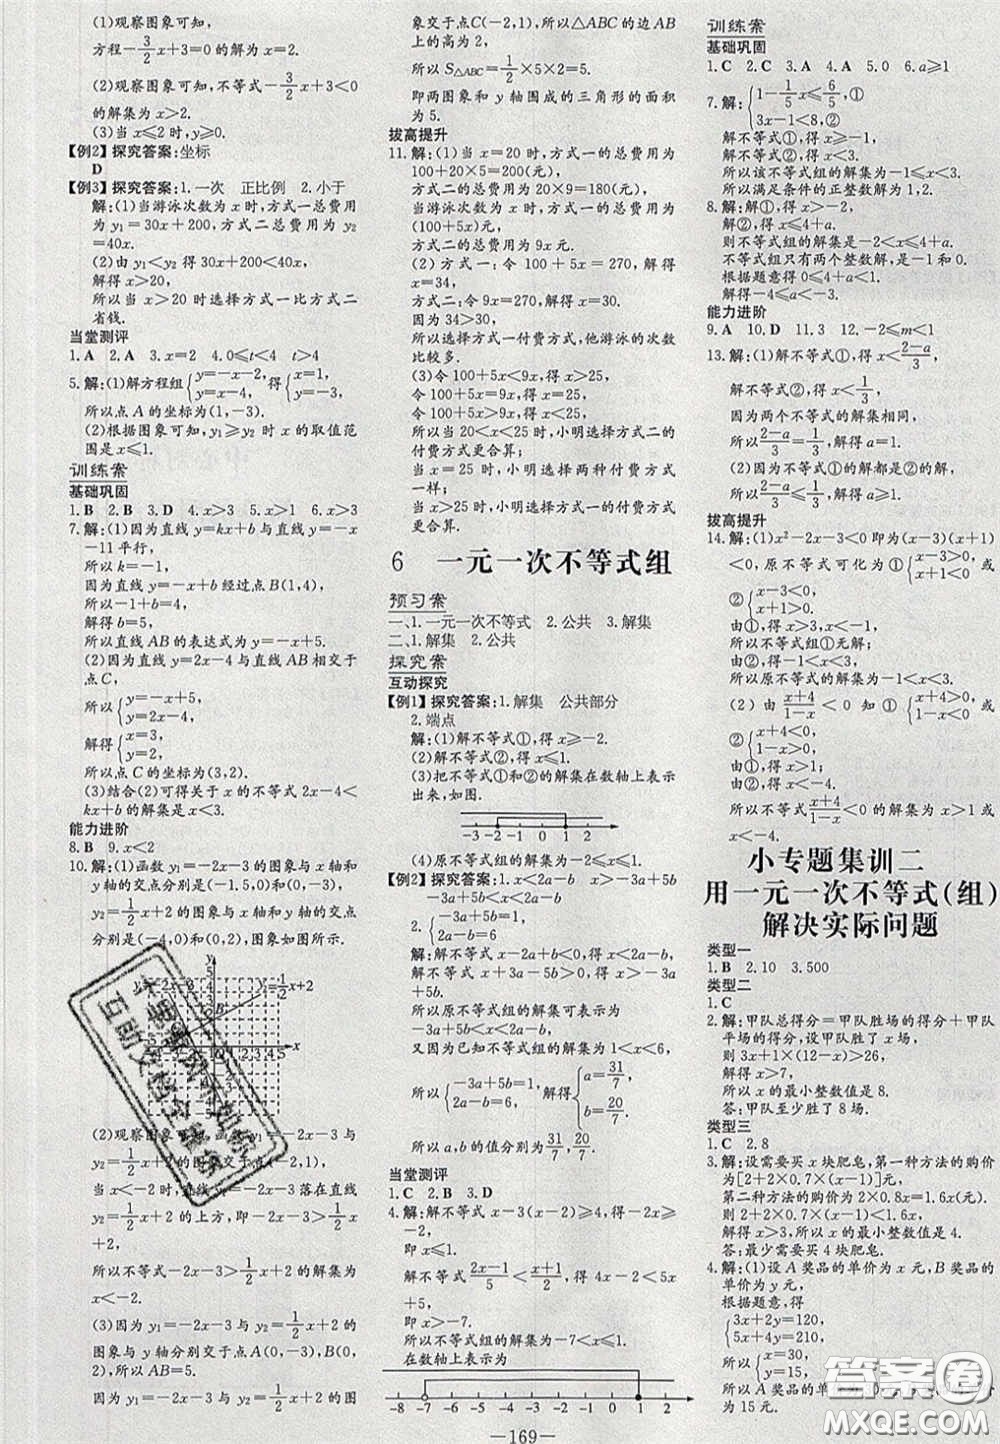 (1)观察图象可知,
方程-3/2x+3=0的解为x=2.
(2)观察图象可知,不等式-3/2x+3<0
的解集为x>2.
(3)当x≤2时,y≥0.
【例2】探究答案:坐标
D
【例3】探究答案:1.一次 正比例 2.小于
解:(1)当游泳次数为x时,方式一总费用
为y₁=30x+200,方式二总费用为y₂
=40x.
(2)由y₁<y₂得30x+200<40x,
解得x>20,
所以当x>20时选择方式一比方式二
省钱.
当堂测评
1.A 2.A 3.x=2 4.0≤t<4 t>4
5.解:(1)解方程组{y=-x-2, y=x-4, 得{x=1, y=-3,
所以点A的坐标为(1,-3).
(2)根据图象可知,y₁≥y₂时x的取值范
围是x≤1.
训练案
基础巩固
1.B 2.B 3.D 4.x>3 5.x>1 6.x>3
7.解:(1)因为直线y=kx+b与直线y=-x
-11平行,
所以k=-1.
因为直线y=-x+b经过点B(1,4),
所以-1+b=4,
解得b=5,
所以直线AB的表达式为y=-x+5.
(2)因为直线y=2x-4与直线AB相交于
点C,
所以{y=-x+5, y=2x-4,
解得{x=3, y=2,
所以点C的坐标为(3,2).
(3)结合(2)可得关于x的不等式2x-4<
kx+b的解集是x<3.
能力进阶
8.B 9.x<2
10.解:(1)函数y₁=-2x-3的图象与x轴和
y轴的交点分别是(-1.5,0)和(0,-3),
y₂=1/2x+2的图象与x轴和y轴的交点
分别是(-4,0)和(0,2),图象如图所示.
(2)观察图象可知,y₁=-2x-3与
y₂=1/2x+2的图象交于点(-2,1),
当x<-2时,直线y₁=-2x-3落在直线
y₂=1/2x+2的上方,即-2x-3>1/2x
+2,
所以不等式-2x-3>1/2x+2的解集为
x<-2.
(3)因为y₁=-2x-3与y₂=1/2x+2
的图象与y轴分别交于点A(0,-3),B(0,
2),所以AB=5.
因为y₁=-2x-3与y₂=1/2x+2的图
象交于点C(-2,1),所以△ABC的边AB
上的高为2,
所以S△ABC=1/2×5×2=5.
即两图象和y轴围成的三角形的面积
为5.
拔高提升
11.解:(1)当x=20时,方式一的总费用为
100+20×5=200(元),
方式二的总费用为20×9=180(元),
当游泳次数为x时,方式一的总费用为
(100+5x)元,
方式二的总费用为9x元.
(2)方式一:令100+5x=270,解得
x=34,
方式二:令9x=270,解得x=30.
因为34>30,
所以选择方式一付费方式,他游泳的次数
比较多.
(3)令100+5x<9x,得x>25,
令100+5x=9x,得x=25,
令100+5x>9x,得x<25,
所以当20<x<25时,小明选择方式二的
付费方式更合算;
当x=25时,小明选择两种付费方式
一样;
当x>25时,小明选择方式一的付费方式
更合算.
6 一元一次不等式组
预习案
一、1.一元一次不等式 2.公共 3.解集
二、1.解集 2.公共
探究案
互动探究
【例1】探究答案:1.解集 公共部分
2.端点
解:(1)解不等式①,得x≥-2.
(2)解不等式②,得x≤1.
(3)把不等式①和②的解集在数轴上表示
出来,如图.
-3 -2 -1 0 1 2
(4)原不等式组的解集为-2≤x≤1.
【例2】探究答案:1.x<2a-b x>-3a+5b
-3a+5b<x<2a-b
2.{-3a+5b=1, 2a-b=6
解:解不等式x+b<2a,得x<2a-b,
解不等式x+3a>5b,得x>-3a+5b,
所以原不等式组的解集可表示为
-3a+5b<x<2a-b.
又因为已知不等式组的解集为1<x<6,
所以{-3a+5b=1, 2a-b=6, 解得{a=31/7, b=20/7.
所以a,b的值分别为31/7,20/7.
当堂测评
1.C 2.B 3.D
4.解:解不等式x-3(x-2)≥4,得-2x≥
-2,
即x≤1.
解不等式(2x-1)/5<(x+1)/2,得4x-2<5x
+5,
即x>-7.
所以不等式组的解集为-7<x≤1.
在数轴上表示为
-8 -7 -6 -5 -4 -3 -2 -1 0 1 2
训练案
基础巩固
1.C 2.C 3.A 4.A 5.0 6.a≥1
7.解:{1-1/5x≤6/5,① 3x-1<8,②
解不等式①,得x≥-1,
解不等式②,得x<3.
所以该不等式组的解集为-1≤x<3,
所以满足条件的正整数解为1,2.
8.解:解①,得x>-2,
解②,得x≤4+a.
则不等式组的解集是-2<x≤4+a.
不等式组只有两个整数解,是-1和0.
根据题意得0≤4+a<1.
解得-4≤a<-3.
能力进阶
9.A 10.D 11.3 12.-2≤m<1
13.解:(1)解不等式①,得x<(2-a)/3,
解不等式②,得x<1/3.
因为两个不等式的解集相同,
所以(2-a)/3=1/3,解得a=1.
(2)因为不等式①的解都是②的解,
所以(2-a)/3≤1/3,解得a≥1.
拔高提升
14.解:(1)x²-2x-3<0即为(x-3)(x+1)
<0,原不等式可化为①{x-3>0, x+1<0
②{x-3<0, x+1>0.
由①,得不等式组①无解;
由②,得-1<x<3.
(2)由(x+4)/(1-x)<0知①{x+4>0, 1-x<0
②{x+4<0, 1-x>0.
解①,得x>1;
解②,得x<-4.
所以不等式(x+4)/(1-x)<0的解集为x>1或
x<-4.
小专题集训二
用一元一次不等式(组)
解决实际问题
类型一
1.B 2.10 3.500
类型二
1.C
2.解:甲队总得分=甲队胜场的得分+甲队
平场的得分,设甲队胜了x场,
则3x+1×(12-x)>26,
解得x>7,
所以x的最小整数值是8.
答:甲队至少胜了8场.
类型三
1.C 2.8
3.解:设需要买x块肥皂,第一种方法的购价
为[2+2×0.7×(x-1)]元,
第二种方法的购价为2×0.8x=1.6x(元).
则2+2×0.7×(x-1)<1.6x,
解得x>3,所以x的最小整数值是4.
答:最少需要买4块肥皂.
4.解:(1)设A奖品的单价为x元,B奖品的
单价为y元,
根据题意,得
{3x+2y=120, 5x+4y=210,
所以{x=30, y=15,
所以A奖品的单
为15元.
—169—
答案圈
MXQE.COM